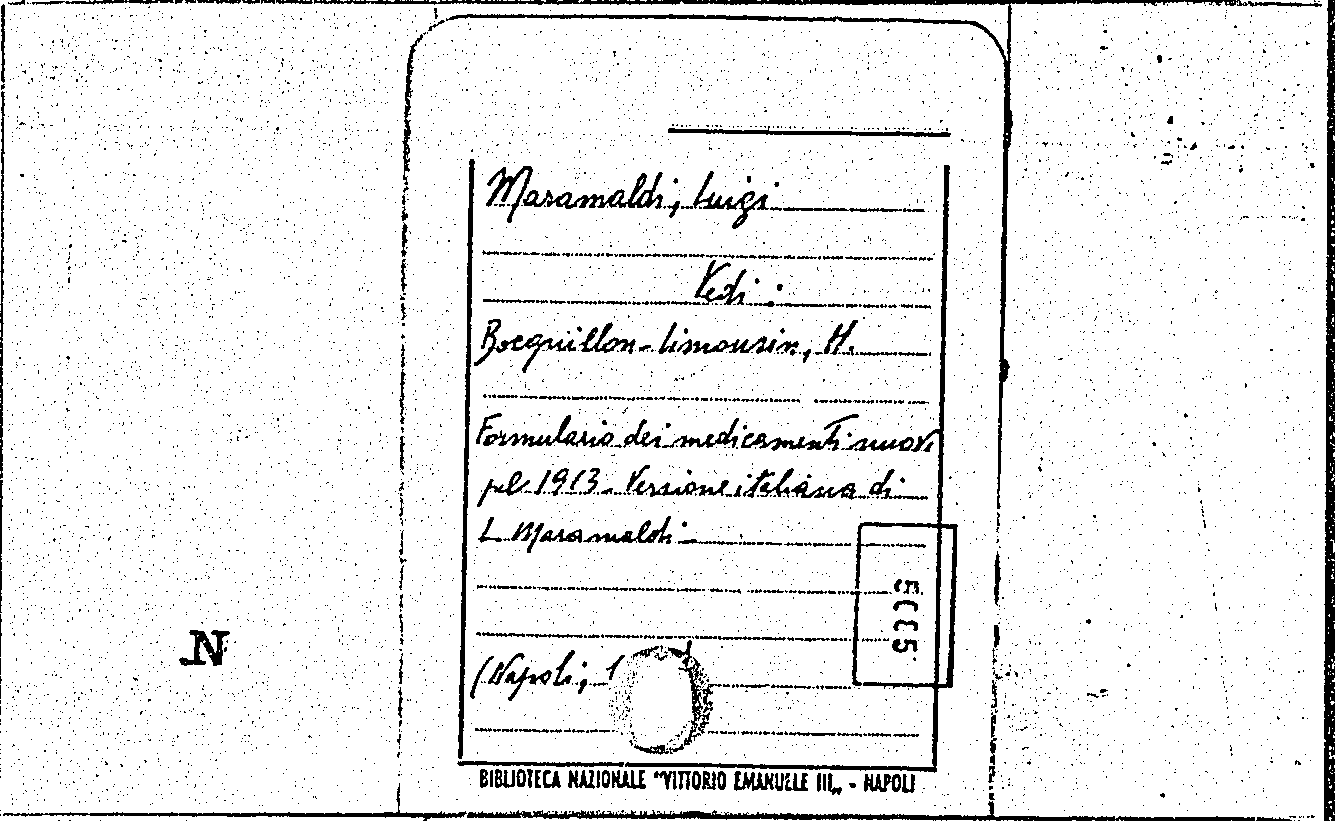 Maramaldi, Luigi
Vedi:
Bocquillon-Limousin, H.
Formulario dei medicamenti nuovi
pel 1913. Versione italiana di
L. Maramaldi -
(Napoli, 1
N
BIBLIOTECA NAZIONALE "VITTORIO EMANUELE III„ - NAPOLI